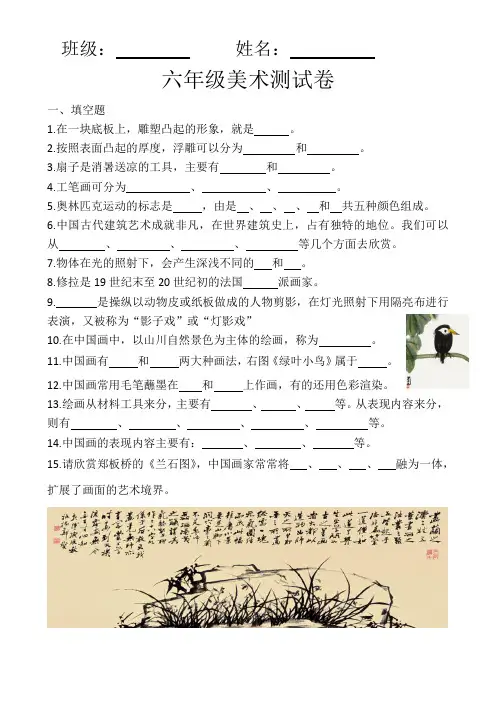 班级：________ 姓名：________
六年级美术测试卷
一、填空题
1.在一块底板上，雕塑凸起的形象，就是____。
2.按照表面凸起的厚度，浮雕可以分为______和______。
3.扇子是消暑送凉的工具，主要有______和______。
4.工笔画可分为______、______、______。
5.奥林匹克运动的标志是___，由是__、__、__、__和__共五种颜色组成。
6.中国古代建筑艺术成就非凡，在世界建筑史上，占有独特的地位。我们可以
从______、______、______、______等几个方面去欣赏。
7.物体在光的照射下，会产生深浅不同的__和__。
8.修拉是19世纪末至20世纪初的法国____派画家。
9.____是操纵以动物皮或纸板做成的人物剪影，在灯光照射下用隔亮布进行
表演，又被称为“影子戏”或“灯影戏”
10.在中国画中，以山川自然景色为主体的绘画，称为______。
11.中国画有____和____两大种画法，右图《绿叶小鸟》属于____。
12.中国画常用毛笔蘸墨在___和___上作画，有的还用色彩渲染。
13.绘画从材料工具来分，主要有____、____、____等。从表现内容来分，
则有____、____、____、____、____等。
14.中国画的表现内容主要有：____、____、____等。
15.请欣赏郑板桥的《兰石图》，中国画家常常将__、__、__、__融为一体，
扩展了画面的艺术境界。